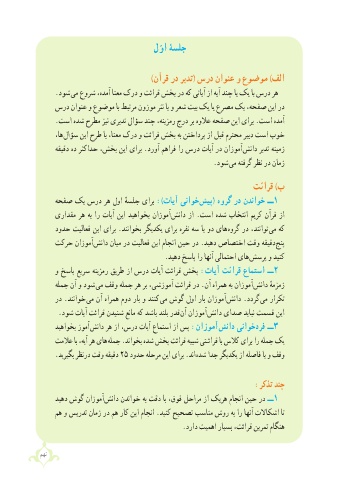 جلسهٔ اوّل
الف) موضوع و عنوان درس (تدبر در قرآن)
هر درس با یک یا چند آیه از آیاتی که در بخش قرائت و درک معنا آمده، شروع می‌شود.
در این صفحه، یک مصرع یا یک بیت شعر و یا نثر موزون مرتبط با موضوع و عنوان درس
آمده است. برای این صفحه علاوه بر درج رمزینه، چند سؤال تدبری نیز مطرح شده است.
خوب است دبیر محترم قبل از پرداختن به بخش قرائت و درک معنا، با طرح این سؤال‌ها،
زمینه تدبر دانش‌آموزان در آیات درس را فراهم آورد. برای این بخش، حداکثر ده دقیقه
زمان در نظر گرفته می‌شود.
ب) قرائت
۱ــ خواندن در گروه (پیش‌خوانی آیات) : برای جلسهٔ اول هر درس یک صفحه
از قرآن کریم انتخاب شده است. از دانش‌آموزان بخواهید این آیات را به هر مقداری
که می‌توانند، در گروه‌های دو یا سه نفره برای یکدیگر بخوانند. برای این فعالیت حدود
پنج‌دقیقه وقت اختصاص دهید. در حین انجام این فعالیت در میان دانش‌آموزان حرکت
کنید و پرسش‌های احتمالی آنها را پاسخ دهید.
۲ــ استماع قرائت آیات : بخش قرائت آیات درس از طریق رمزینه سریع پاسخ و
زمزمهٔ دانش‌آموزان به همراه آن. در قرائت آموزشی، بر هر جمله وقف می‌شود و آن جمله
تکرار می‌گردد. دانش‌آموزان بار اول گوش می‌کنند و بار دوم همراه آن می‌خوانند. در
این قسمت نباید صدای دانش‌آموزان آن‌قدر بلند باشد که مانع شنیدن قرائت آیات شود.
۳ــ فردخوانی دانش‌آموزان : پس از استماع آیات درس، از هر دانش‌آموز بخواهید
یک جمله را برای کلاس با قرائتی شبیه قرائت پخش شده بخواند. جمله‌های هر آیه، با علامت
وقف و با فاصله از یکدیگر جدا شده‌اند. برای این مرحله حدود ۲۵ دقیقه وقت در نظر بگیرید.
چند تذکر :
۱ــ در حین انجام هریک از مراحل فوق، با دقت به خواندن دانش‌آموزان گوش دهید
تا اشکالات آنها را به روش مناسب تصحیح کنید. انجام این کار هم در زمان تدریس و هم
هنگام تمرین قرائت، بسیار اهمیت دارد.